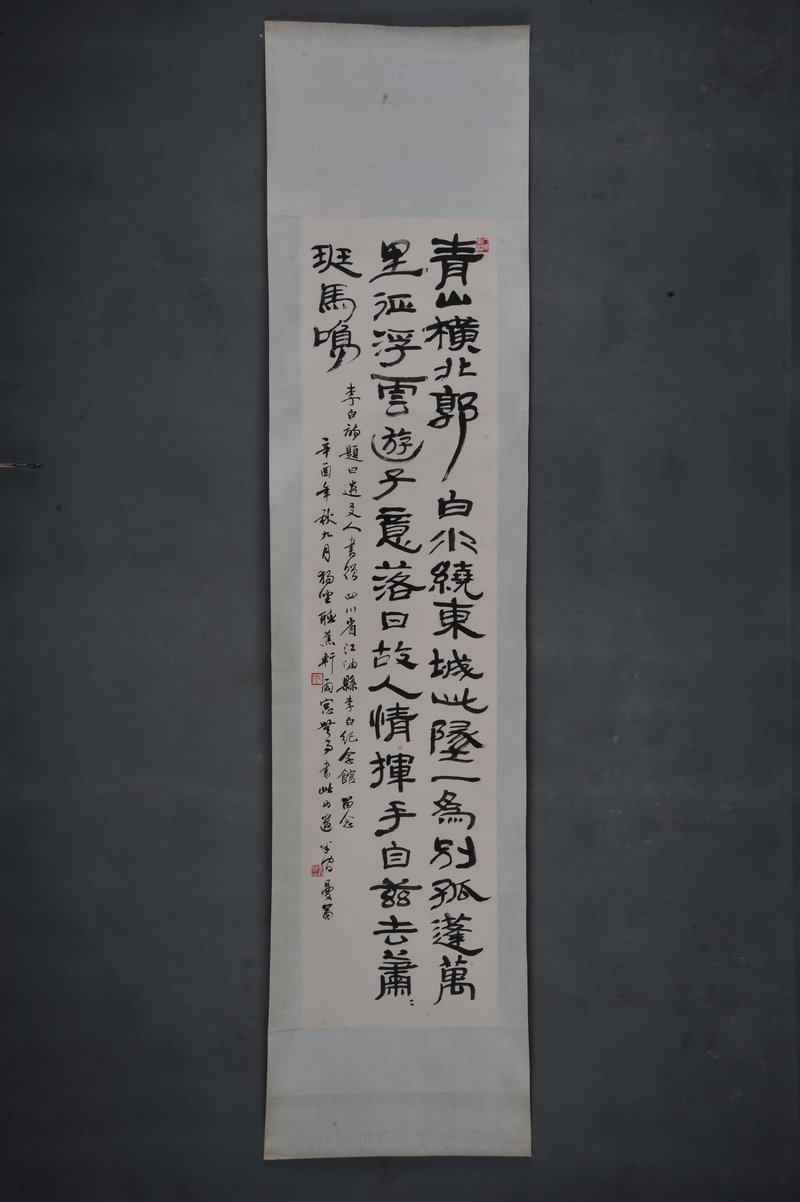 青山横北郭白水繞東城此墬一為别孤蓬萬
里征浮雲遊子意落日故人情揮手自兹去蕭〻
班馬鳴
李白詩題曰送友人書贈四川省江油縣李白紀念館留念
辛酉年秋九月獨坐聽蕉軒雨窗無事書此以遣 曼翁